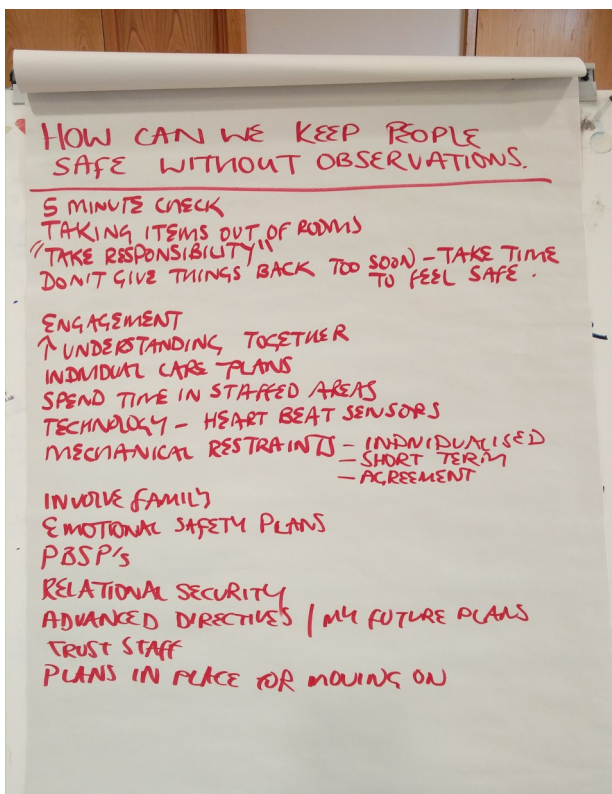 HOW CAN WE KEEP PEOPLE
SAFE WITHOUT OBSERVATIONS.
5 MINUTE CHECK
TAKING ITEMS OUT OF ROOMS
"TAKE RESPONSIBILITY"
DON'T GIVE THINGS BACK TOO SOON – TAKE TIME
TO FEEL SAFE.
ENGAGEMENT
↑ UNDERSTANDING TOGETHER
INDIVIDUAL CARE PLANS
SPEND TIME IN STAFFED AREAS
TECHNOLOGY – HEART BEAT SENSORS
MECHANICAL RESTRAINTS – INDIVIDUALISED
– SHORT TERM
– AGREEMENT
INVOLVE FAMILY
EMOTIONAL SAFETY PLANS
PBSP's
RELATIONAL SECURITY
ADVANCED DIRECTIVES / MY FUTURE PLANS
TRUST STAFF
PLANS IN PLACE FOR MOVING ON